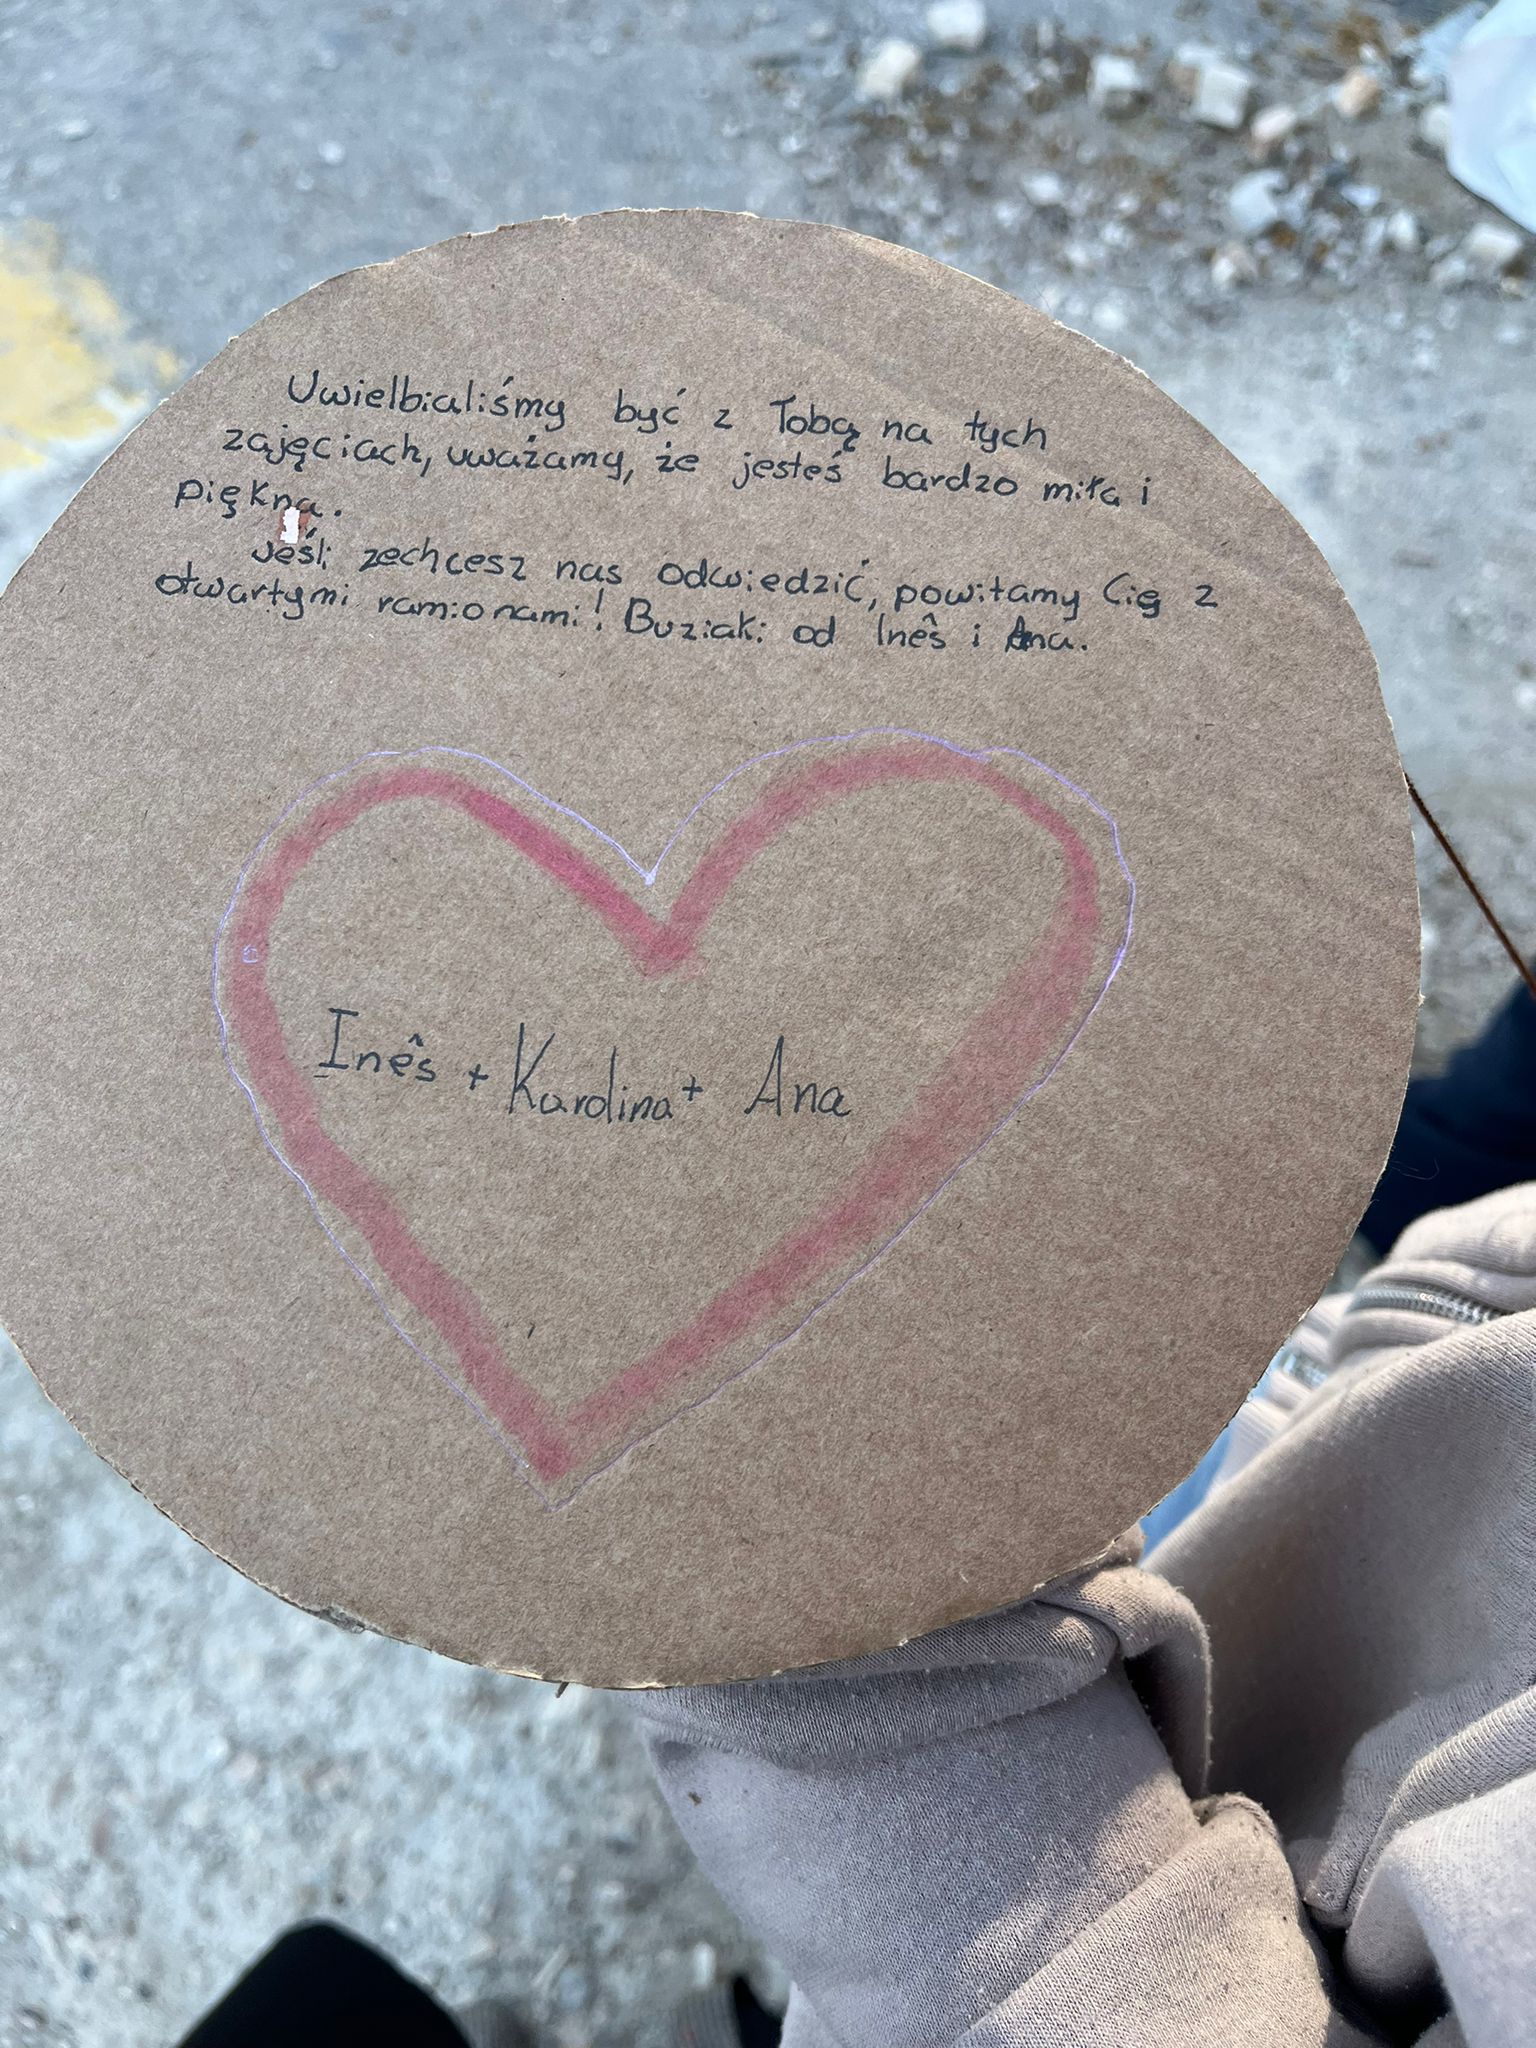 Uwielbialiśmy być z Tobą na tych
zajęciach, uważamy, że jesteś bardzo miła i
piękna.
Jeśli zechcesz nas odwiedzić, powitamy Cię z
otwartymi ramionami! Buziaki od Inês i Ana.
Inês + Karolina + Ana